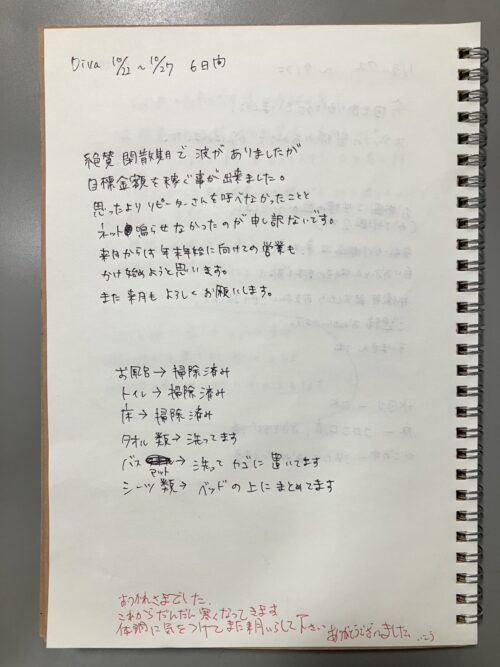 Diva 10/22 〜 10/27 6日間
絶賛 閑散期で 波がありましたが
目標金額を稼ぐ事が出来ました。
思ったより リピーターさんを呼べなかったことと
ネット 鳴らせなかったのが申し訳ないです。
来月からは年末年始に向けての営業も
かけ始めようと思います。
また来月もよろしくお願いします。
お風呂→掃除済み
トイレ→掃除済み
床→掃除済み
タオル類→洗ってます
バスマット→洗ってカゴに置いてます
シーツ類→ベッドの上にまとめてます
おつかれさまでした。
これからだんだん寒くなってきます
体調に気をつけてまた来月いらして下さい
ありがとうございました